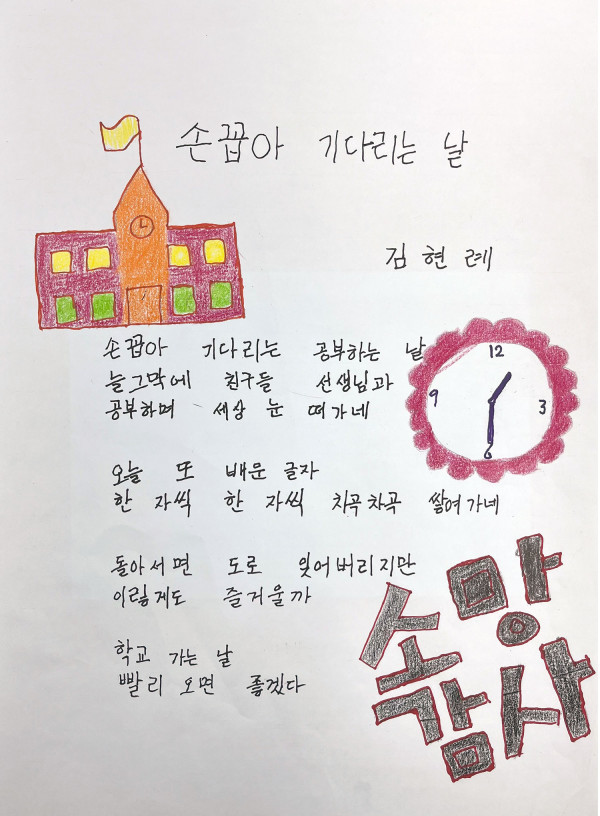 손꼽아 기다리는 날
김현례
손꼽아 기다리는 공부하는 날
늘그막에 친구들 선생님과
공부하며 세상 눈 떠가네
오늘 또 배운 글자
한 자씩 한 자씩 차곡차곡 쌓여가네
돌아서면 도로 잊어버리지만
이렇게도 즐거울까
학교 가는 날
빨리 오면 좋겠다
12
9
3
6
소망
감사